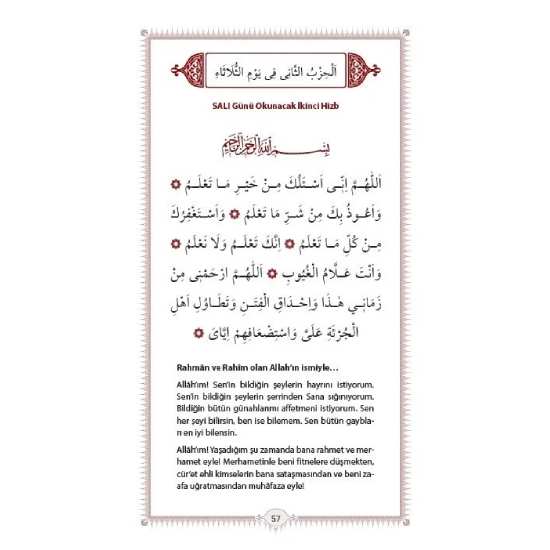 اَلْحِزْبُ الثَّانِى فِى يَوْمِ الثُّلَاثَاءِ
SALI Günü Okunacak İkinci Hizb
بِسْمِ اللّٰهِ الرَّحْمٰنِ الرَّحِيمِ
اَللّٰهُمَّ اِنِّى اَسْئَلُكَ مِنْ خَيْرِ مَا تَعْلَمُ ۞
وَاَعُوذُ بِكَ مِنْ شَرِّ مَا تَعْلَمُ ۞ وَاَسْتَغْفِرُكَ
مِنْ كُلِّ مَا تَعْلَمُ ۞ اِنَّكَ تَعْلَمُ وَلَا نَعْلَمُ ۞
وَاَنْتَ عَلَّامُ الْغُيُوبِ ۞ اَللّٰهُمَّ ارْحَمْنِى مِنْ
زَمَانِى هٰذَا وَاِحْدَاقِ الْفِتَنِ وَتَطَاوُلِ اَهْلِ
الْجُرْئَةِ عَلَىَّ وَاسْتِضْعَافِهِمْ اِيَّاىَ ۞
Rahmân ve Rahîm olan Allah'ın ismiyle…
Allâh'ım! Sen'in bildiğin şeylerin hayrını istiyorum.
Sen'in bildiğin şeylerin şerrinden Sana sığınıyorum.
Bildiğin bütün günahlarımı affetmeni istiyorum. Sen
her şeyi bilirsin, ben ise bilemem. Sen bütün gaybla-
rı en iyi bilensin.
Allâh'ım! Yaşadığım şu zamanda bana rahmet ve mer-
hamet eyle! Merhametinle beni fitnelere düşmekten,
cür'et ehli kimselerin bana sataşmasından ve beni za-
afa uğratmasından muhâfaza eyle!
57